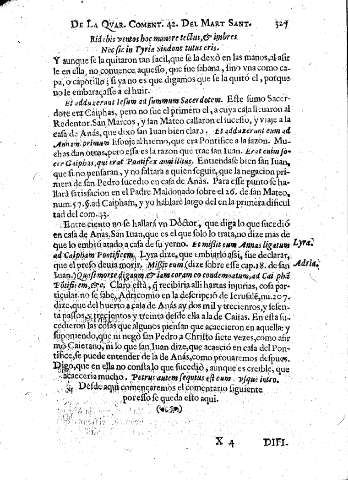 DE LA QUAR. COMENT. 42. DEL MART SANT. 327
Ridebis ventos hoc munere tectus, & imbres
Nec sic in Tyria Sindone tutus eris.
Y aunque se la quitaron tan facil, que se la dexò en las manos, al asir
le en ella, no conuence aquesso, que fue sabona, sino vna como ca-
pa, o capotillo; si ya no es que digamos que se la quitò el, porque
no le embaraçase al huir.
Et adduxerunt Iesum ad summum Sacerdotem. Este sumo Sacer-
dote era Caiphas, pero no fue el primero el, a cuya casa lleuaron al
Redentor. San Marcos, y san Mateo callaron el sucesso, y viaje a la
casa de Anás, que dixo san Iuan bien claro. Et adduxerunt eum ad
Annam primum lisonja a el hierno, que era Pontifice a la sazon. Mu-
chas dan otras, pero essa es la razon que trae san Iuan. Erat enim so-
cer Caiphas, qui erat Pontifex anni illius. Entiendase bien san Iuan,
que si no pensaran, y no faltara a quien seguir, que la negacion pri-
mera de san Pedro sucedio en casa de Anás. Para esse punto se ha-
llará satisfacion en el Padre Maldonado sobre el 26. de san Mateo,
num. 57. §. ad Caipham, y yo hablarè largo del en la primera dificul
tad del com. 43.
Entre ciento no se hallará vn Doctor, que diga lo que sucediò
en casa de Anás. San Iuan, que es el que solo lo trata, no dize mas de
que lo embiò atado a casa de su yerno. Et misit eum Annas ligatum
ad Caipham Pontificem. Lyra dize, que embiarlo assi, fue declarar,
que el preso deuia morir. Misit eum (dize sobre esse cap. 18. de san
Iuan.) Quasi morte dignum, & iam coram eo condemnatum, ad Caipham
Põtificem, &c. Claro està, q̃ recibiria alli hartas injurias, cosa par-
ticular no se sabe, Adricomio en la descripciõ de Ierusalẽ, nu. 207.
dize, que del huerto a casa de Anás ay dos mil y trecientos, y sesen-
ta passos, y trecientos y treinta desde ella a de Caifas. En esta su-
cedieron las cosas que algunos piensan que acaecieron en aquella: y
suponiendo, que ni negò san Pedro a Christo siete vezes, como afir
mò Caietano, ni lo que san Iuan dize, que acaeciò en casa del Pon-
tifice, se puede entender de la de Anás, como prouaremos despues.
Digo, que en ella no consta lo que sucediò, aunque es creible, que
acaeceria mucho. Petrus autem sequutus est eum vsque intro.
Desde aqui començaremos el comentario siguiente
por esso se queda esto aqui.
Lyra.
Adric.
X 4 DIFI-